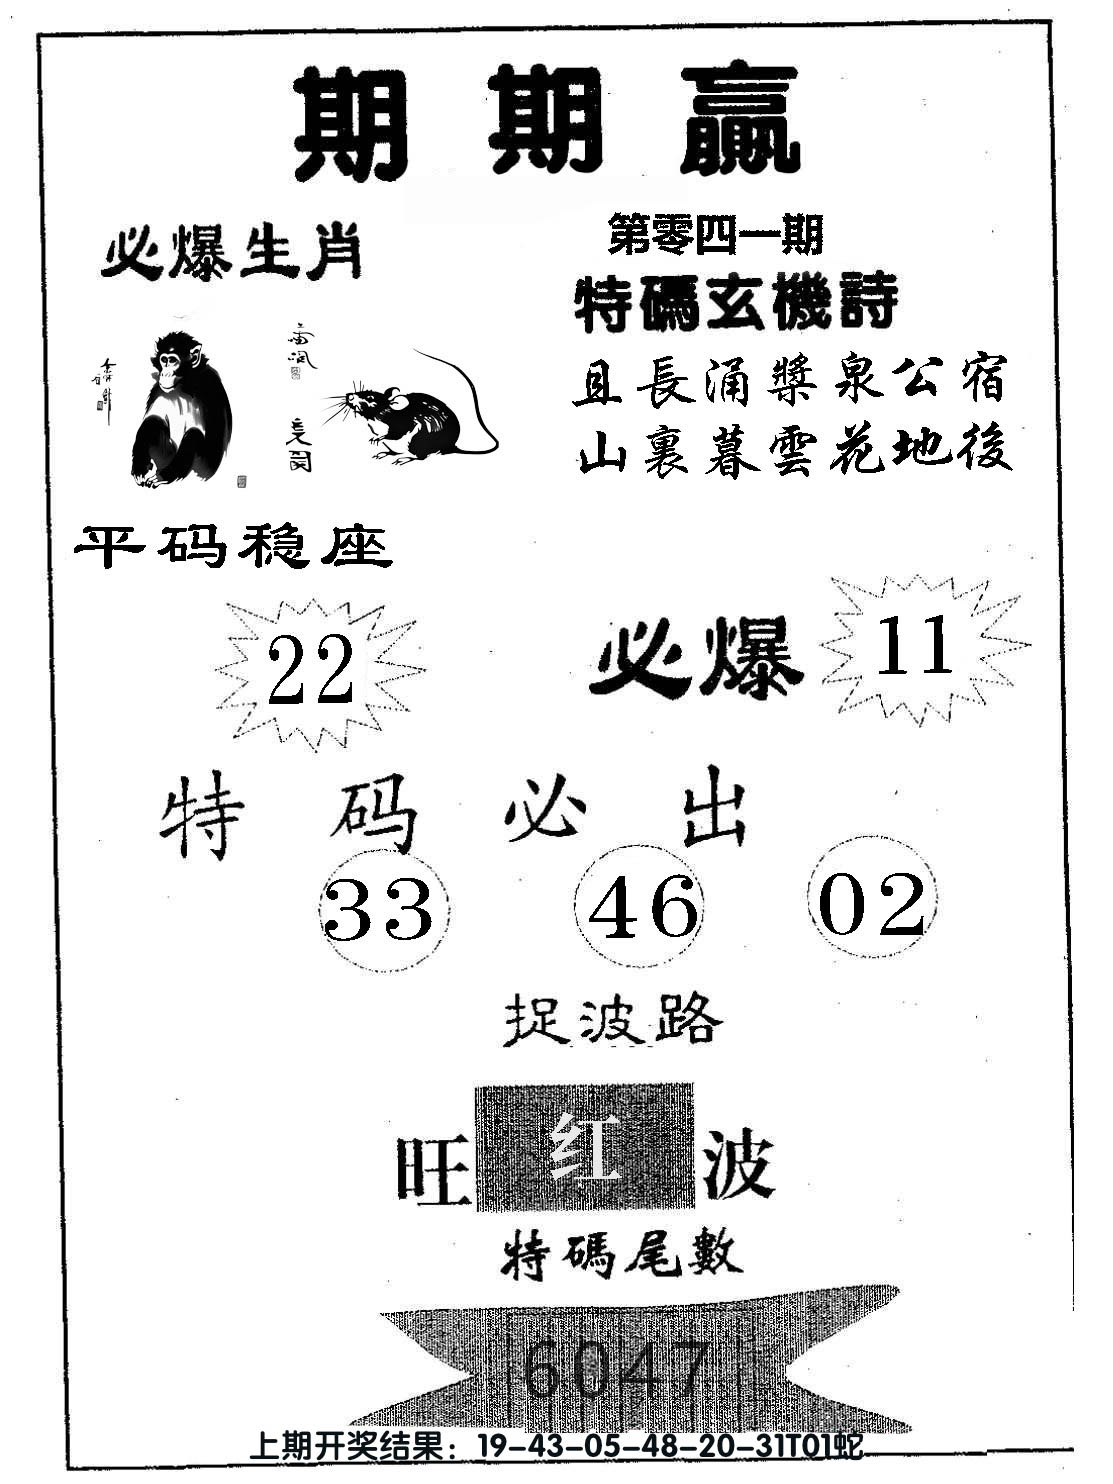 期期贏
必爆生肖
第零四一期
特碼玄機詩
且長涌槳泉公宿
山裏暮雲花地後
平码稳座
22
必爆
11
特码必出
33 46 02
捉波路
旺红波
特碼尾數
6047
上期开奖结果：19-43-05-48-20-31T01蛇